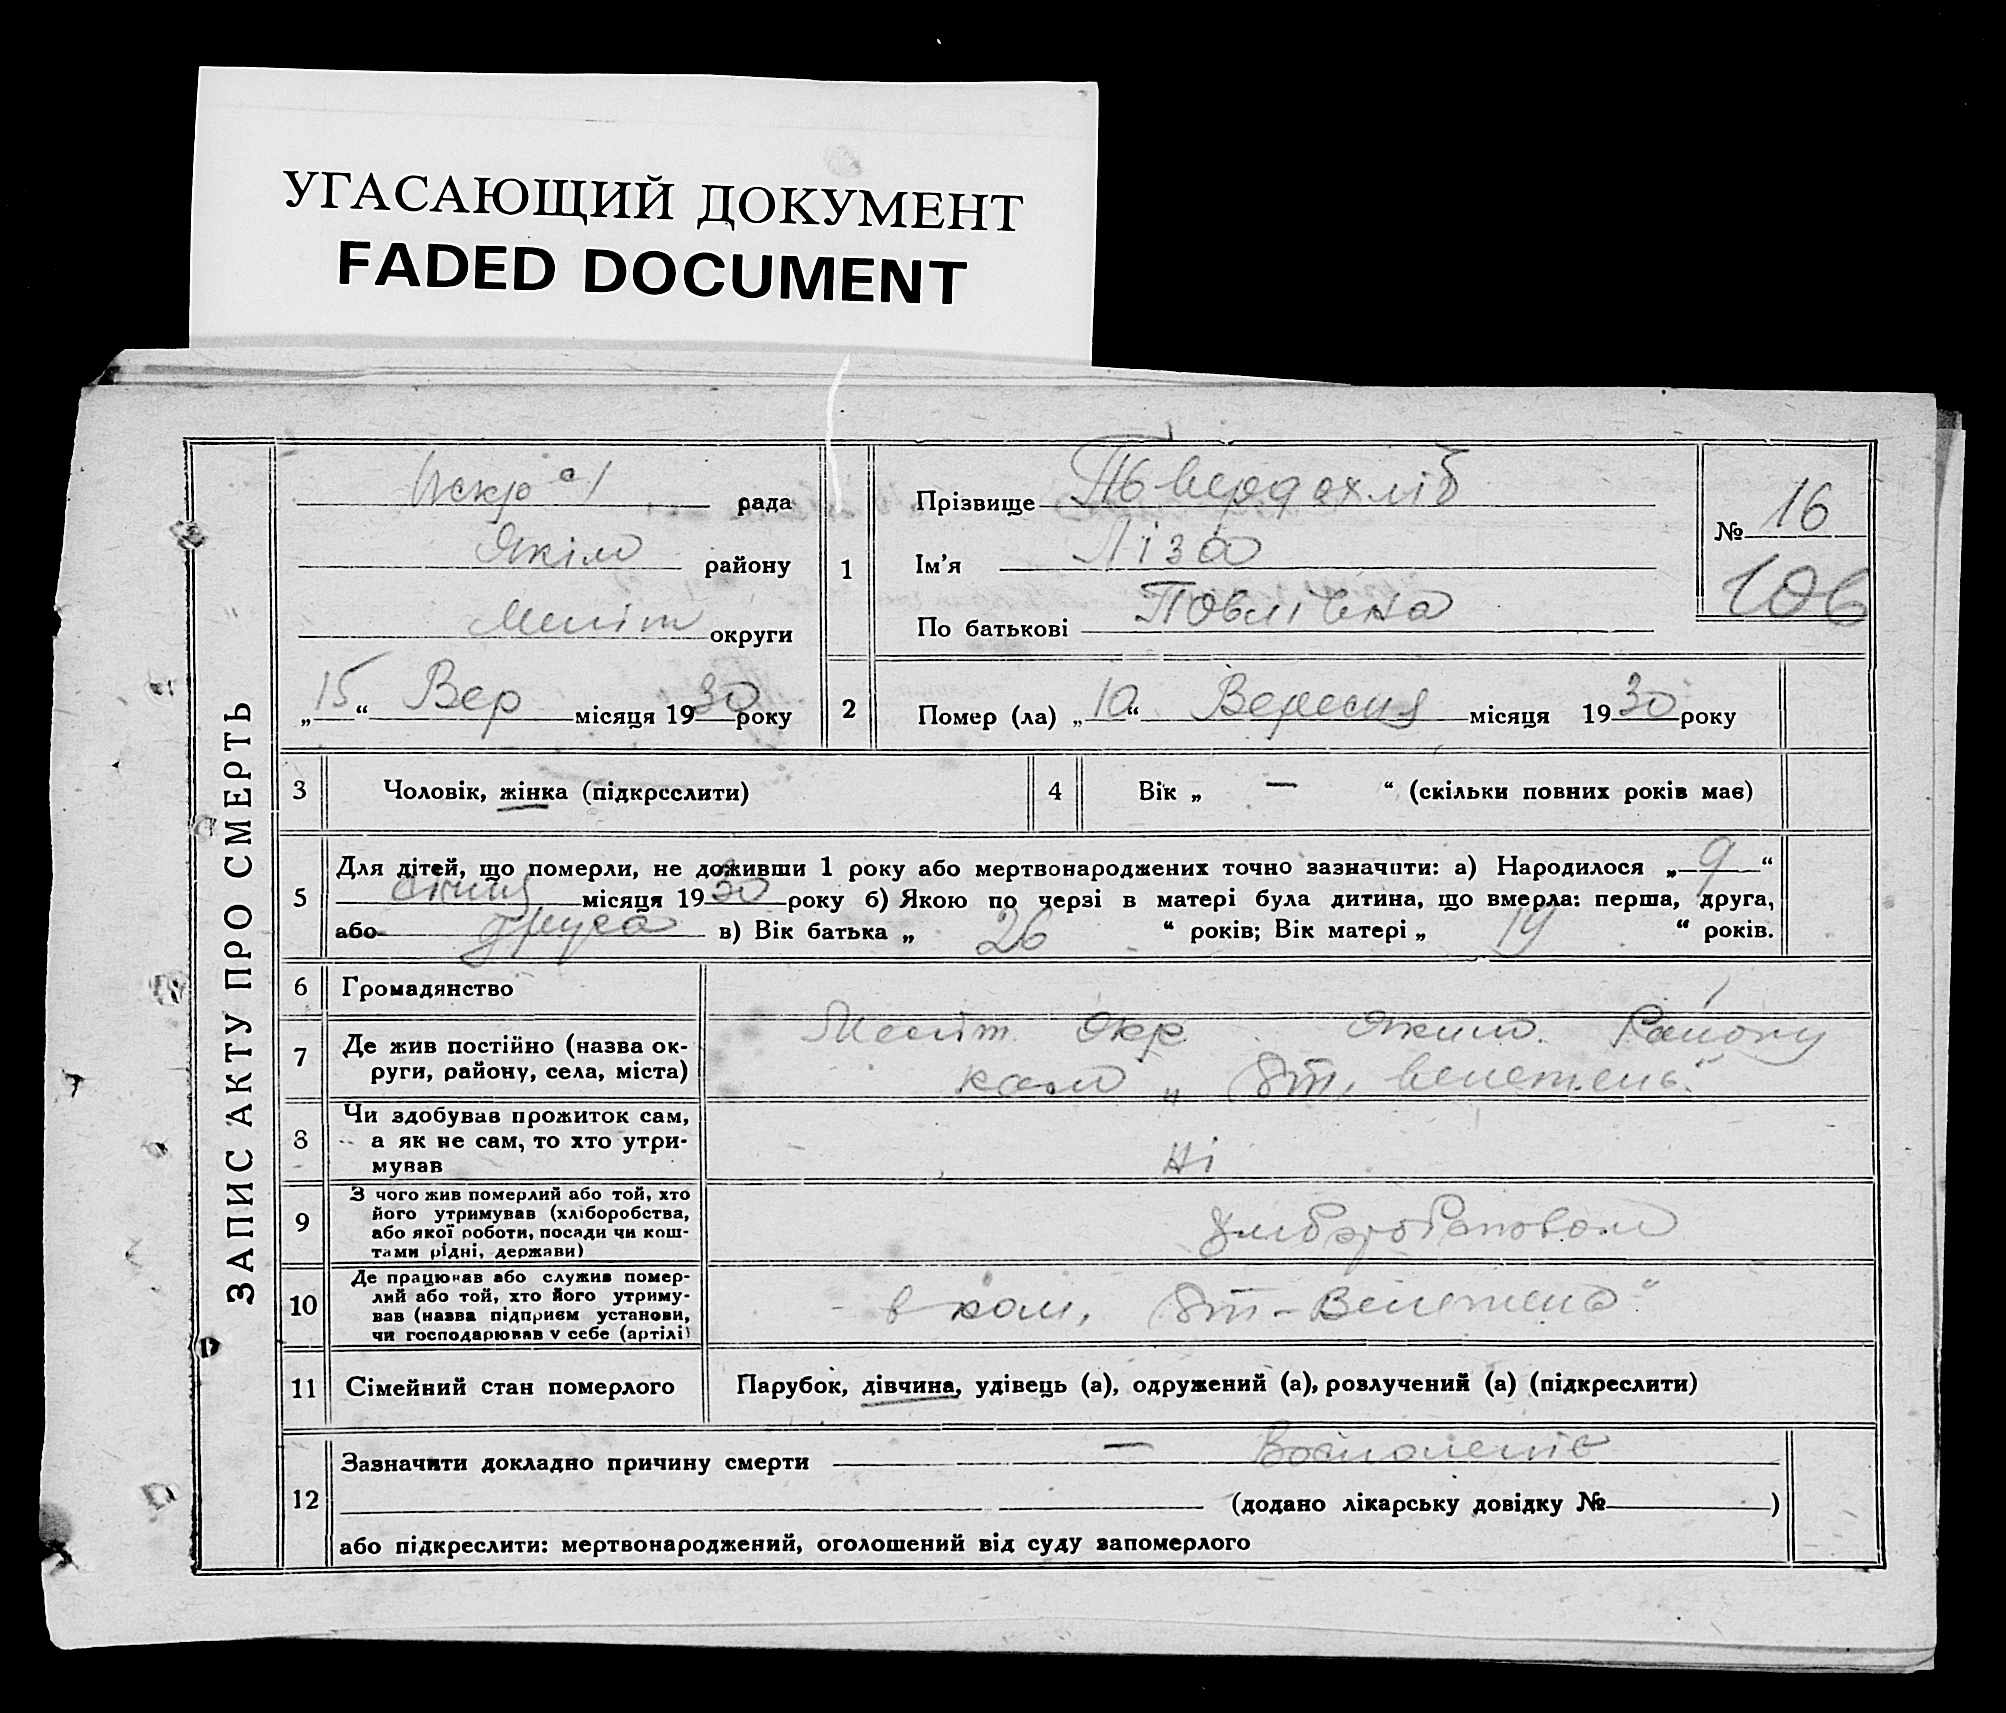 УГАСАЮЩИЙ ДОКУМЕНТ
FADED DOCUMENT
ЗАПИС АКТУ ПРО СМЕРТЬ
рада
Якім району
Меліт округи
„15“ Вер місяця 1930 року
1
Прізвище Твердохліб
Ім’я Ліза
По батькові Павлівна
№ 16
106
2
Помер (ла) „10“ Вересня місяця 1930 року
3 Чоловік, жінка (підкреслити)
4 Вік „ — “ (скільки повних років має)
5
Для дітей, що померли, не доживши 1 року або мертвонароджених точно зазначити: а) Народилося „9“
січня місяця 1930 року б) Якою по черзі в матері була дитина, що вмерла: перша, друга,
або друга в) Вік батька „ 26 “ років; Вік матері „ 19 “ років.
6 Громадянство
7
Де жив постійно (назва ок-
руги, району, села, міста)
Меліт Окр Яким. Району
ком „
8
Чи здобував прожиток сам,
а як не сам, то хто утри-
мував
Ні
9
З чого жив померлий або той, хто
його утримував (хліборобства,
або якої роботи, посади чи кош-
тами рідні, держави)
10
Де працював або служив помер-
лий або той, хто його утриму-
вав (назва підприєм установи,
чи господарював у себе (артілі)
в ком,
11 Сімейний стан померлого
Парубок, дівчина, удівець (а), одружений (а), розлучений (а) (підкреслити)
12
Зазначити докладно причину смерти — Воспаленіє
(додано лікарську довідку № )
або підкреслити: мертвонароджений, оголошений від суду запомерлого